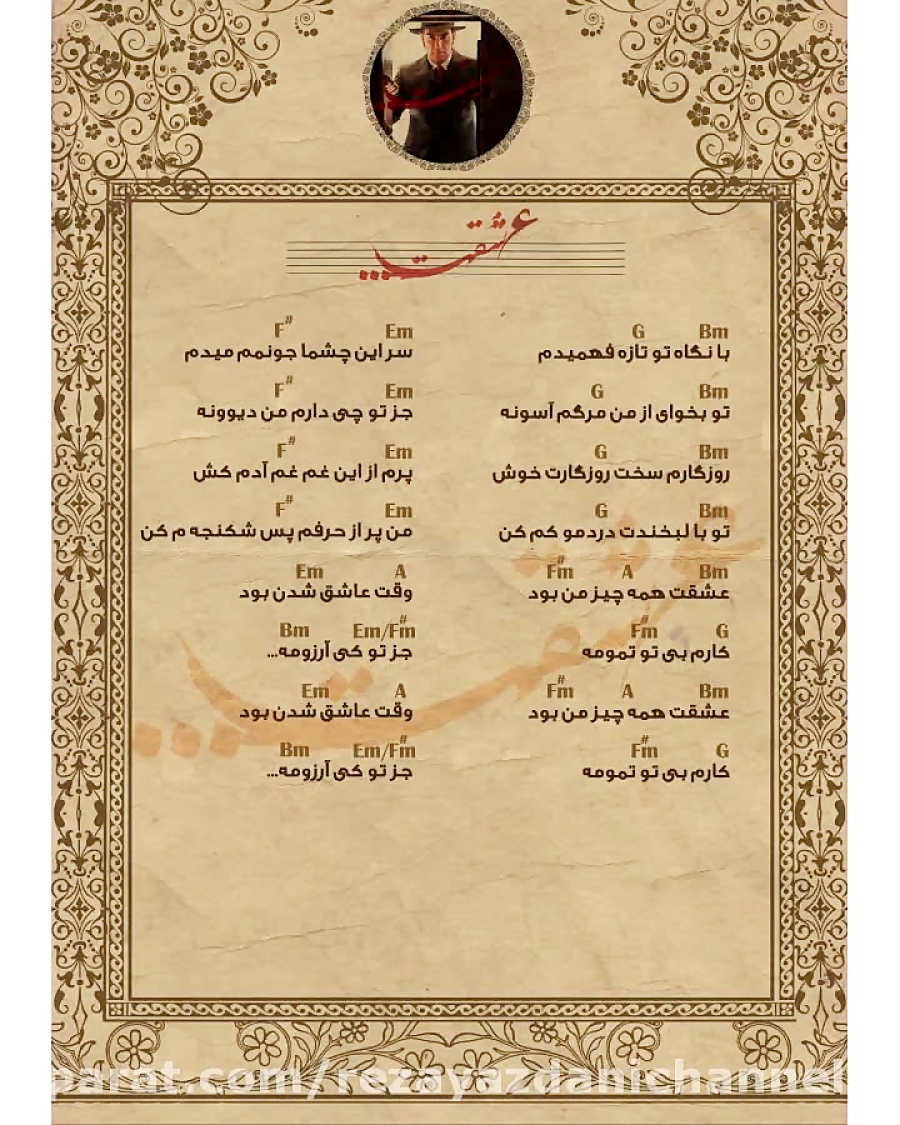 عشقت...
Bm G Em F#
با نگاه تو تازه فهمیدم سر این چشما جونمم میدم
Bm G Em F#
تو بخوای از من مرگم آسونه جز تو چی دارم من دیوونه
Bm G Em F#
روزگارم سخت روزگارت خوش پرم از این غم غم آدم کش
Bm G Em F#
تو با لبخندت دردمو کم کن من پر از حرفم پس شکنجه م کن
Bm A F#m A Em
عشقت همه چیز من بود وقت عاشق شدن بود
G F#m Em/F#m Bm
کارم بی تو تمومه جز تو کی آرزومه...
Bm A F#m A Em
عشقت همه چیز من بود وقت عاشق شدن بود
G F#m Em/F#m Bm
کارم بی تو تمومه جز تو کی آرزومه...
parat.com/rezayazdanichannel